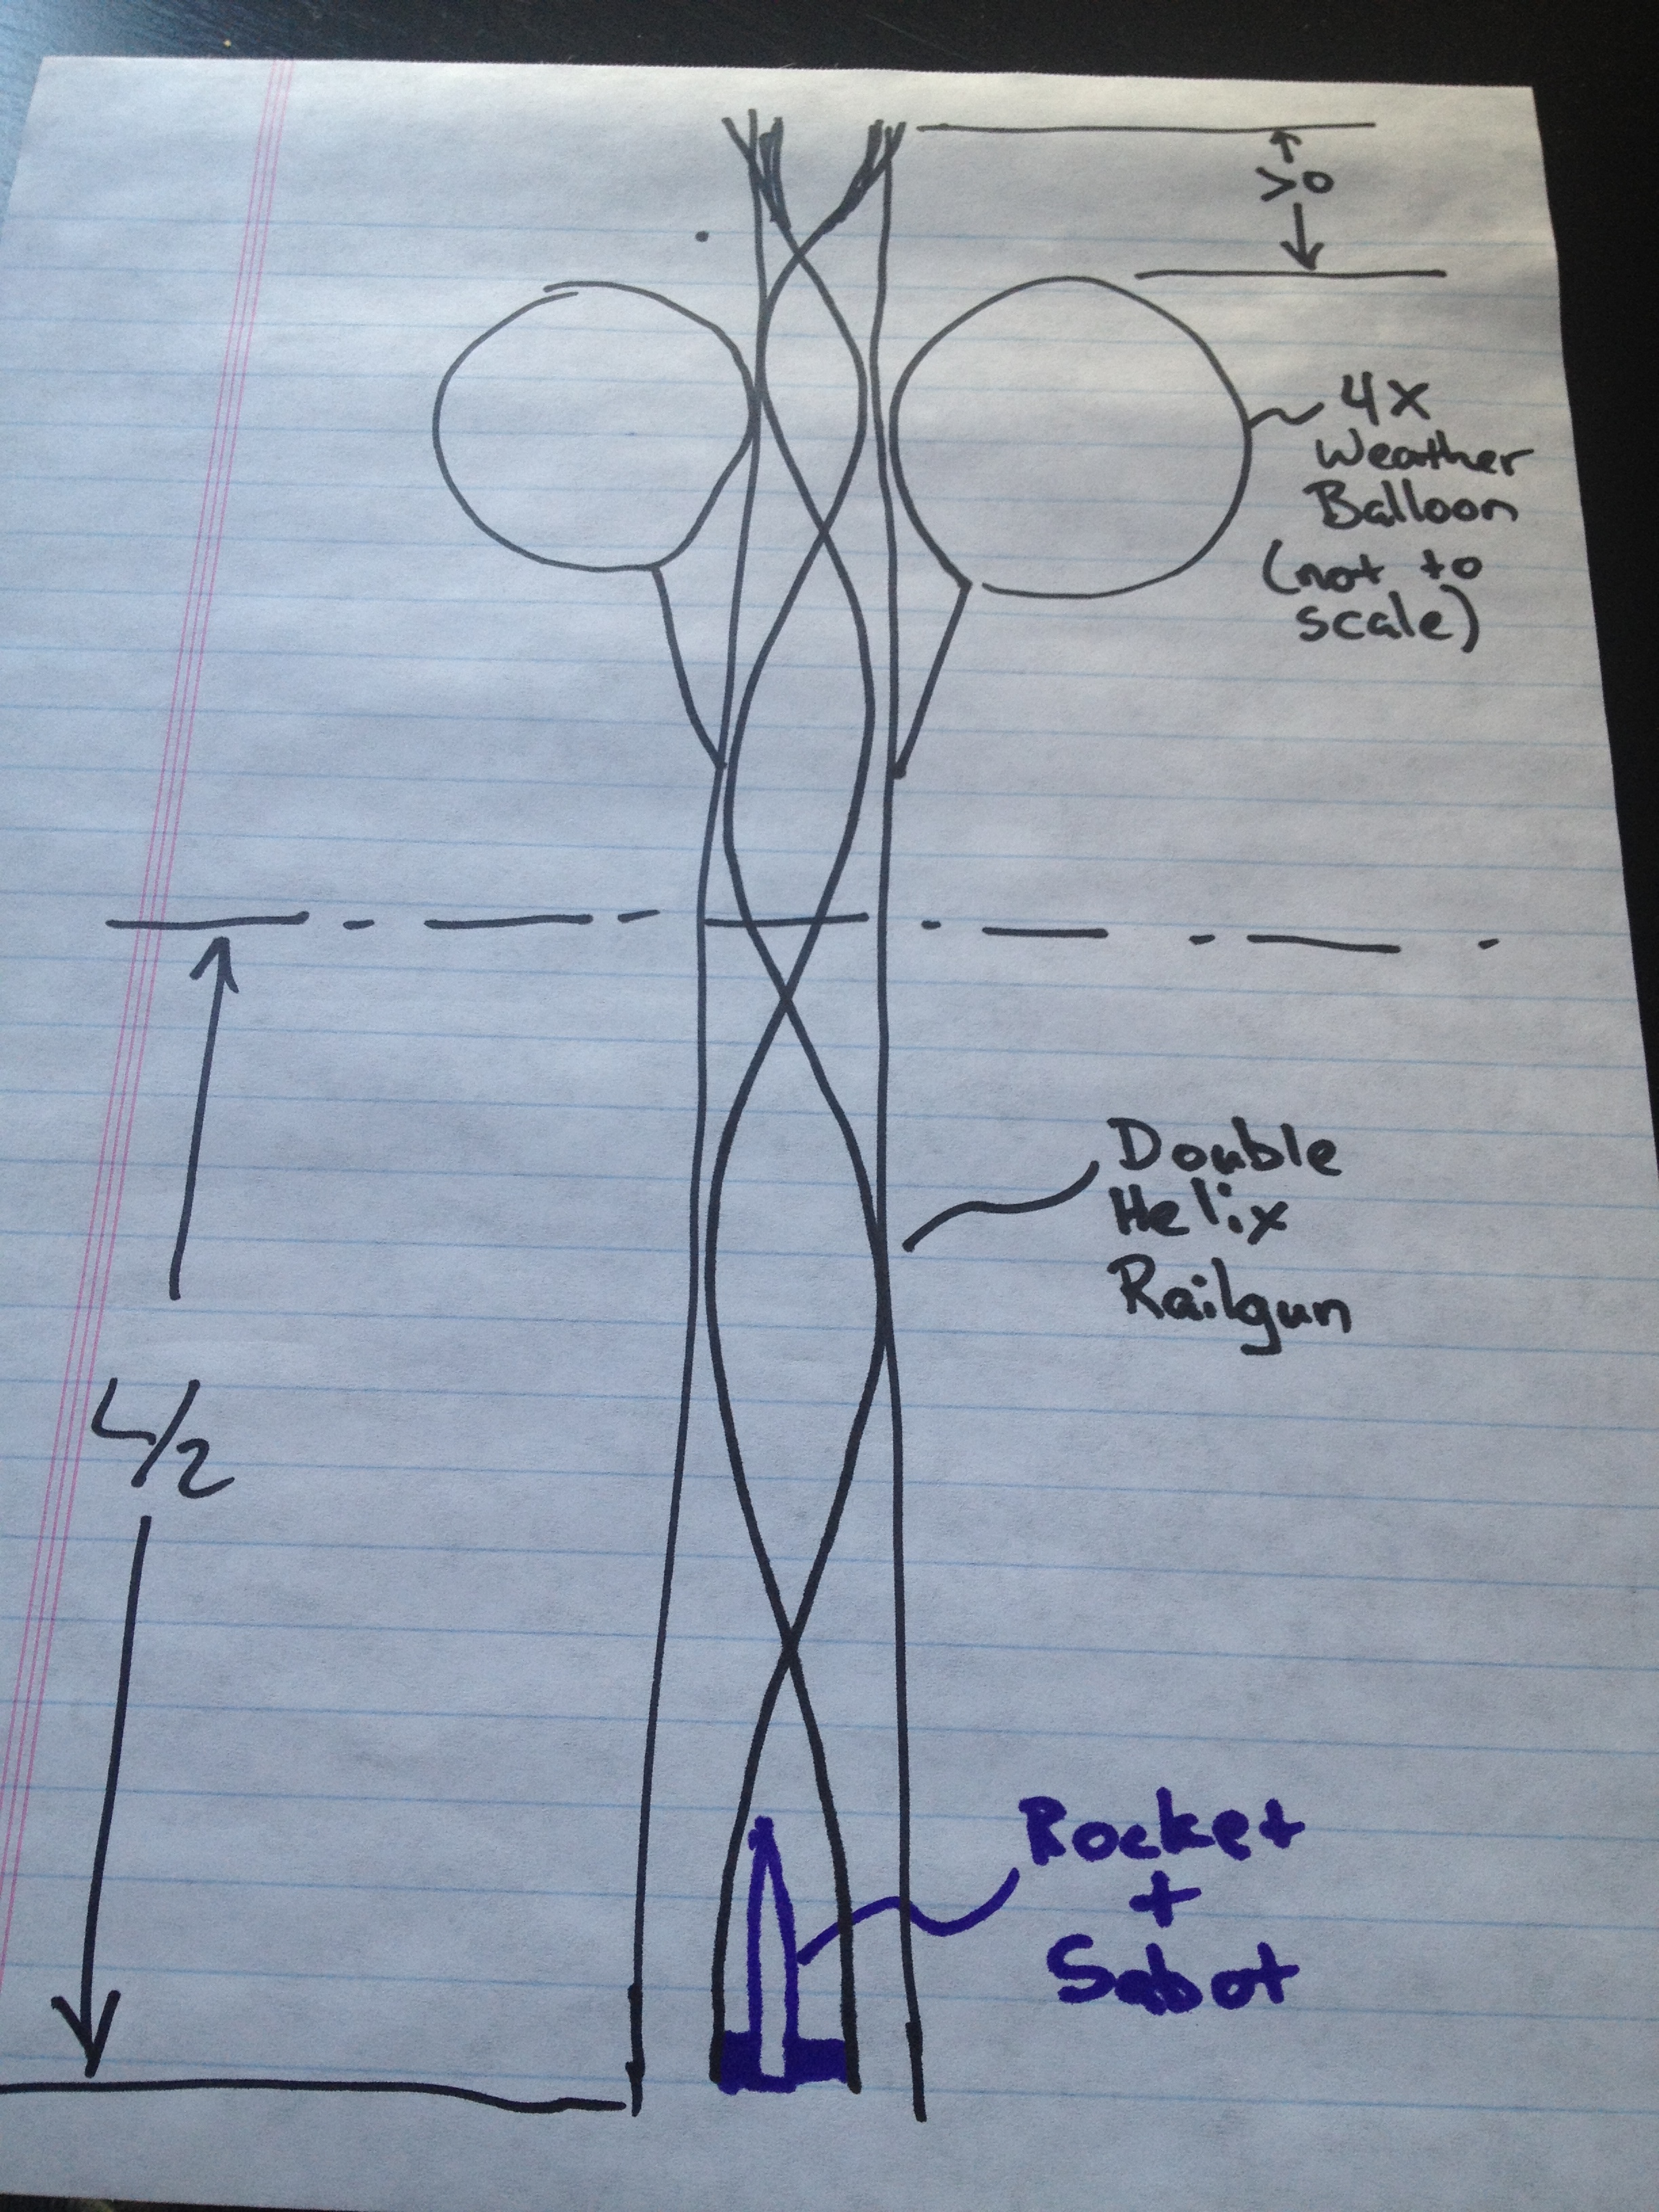 >0
4x
Weather
Balloon
(not to
scale)
Double
Helix
Railgun
L/2
Rocket
+
Sabot